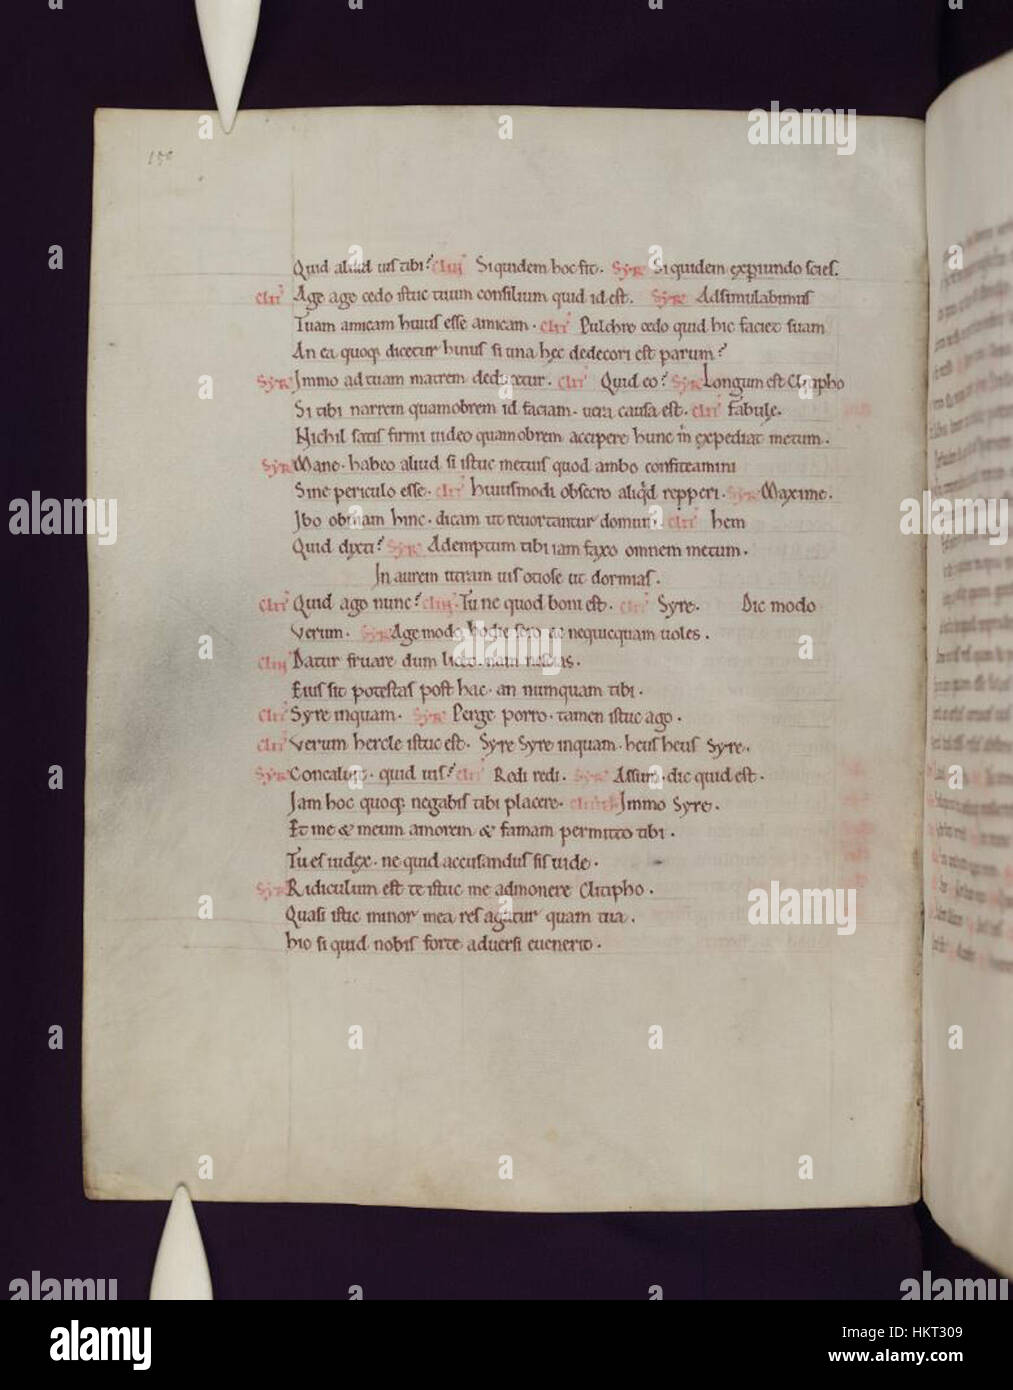 150
Quid aliud uis tibi? Clin Si quidem hoc fit. Syr Si quidem experiundo scies.
Clit Age age cedo istuc tuum consilium quid id est. Syr Adsimulabimus
Tuam amicam huius esse amicam. Clit Pulchre cedo quid hic faciet suam
An ea quoq; dicetur huius si una hęc dedecori est parum?
Syr Immo ad tuam matrem deducetur. Clit Quid eo? Syr Longum est Clitipho
Si tibi narrem quamobrem id faciam. uera causa est. Clit fabulę.
Nichil satis firmi uideo quamobrem accipere hunc m̄ expediat metum.
Syr Mane. habeo aliud si istuc metuis quod ambo confiteamini
Sine periculo esse. Clit huiusmodi obsecro aliqd reperi. Syr Maxime.
Ibo obuiam hinc. dicam ut reuortantur domum. Clit hem
Quid dixti? Syr Ademptum tibi iam faxo omnem metum.
In aurem utram uis otiose ut dormias.
Clit Quid ago nunc? Clin Tu ne quod boni est. Clit Syre. Dic modo
Verum. Syr Age modo hodie sero ac nequicquam uoles.
Clin Datur fruare dum licet. nam nescias.
Eius sit potestas post hac. an numquam tibi.
Clit Syre inquam. Syr Perge porro. tamen istuc ago.
Clit Verum hercle istuc est. Syre Syre inquam. heus heus Syre.
Syr Concaluit. quid uis? Clit Redi redi. Syr Assum. dic quid est.
Iam hoc quoq; negabis tibi placere. Immo Syre.
Et me & meum amorem & famam permitto tibi.
Tu es iudex. ne quid accusandus sis uide.
Syr Ridiculum est te istuc me admonere Clitipho.
Quasi istic minor mea res agatur quam tua.
hic si quid nobis forte aduersi euenerit.
alamy
alamy
Image ID: HKT309
www.alamy.com